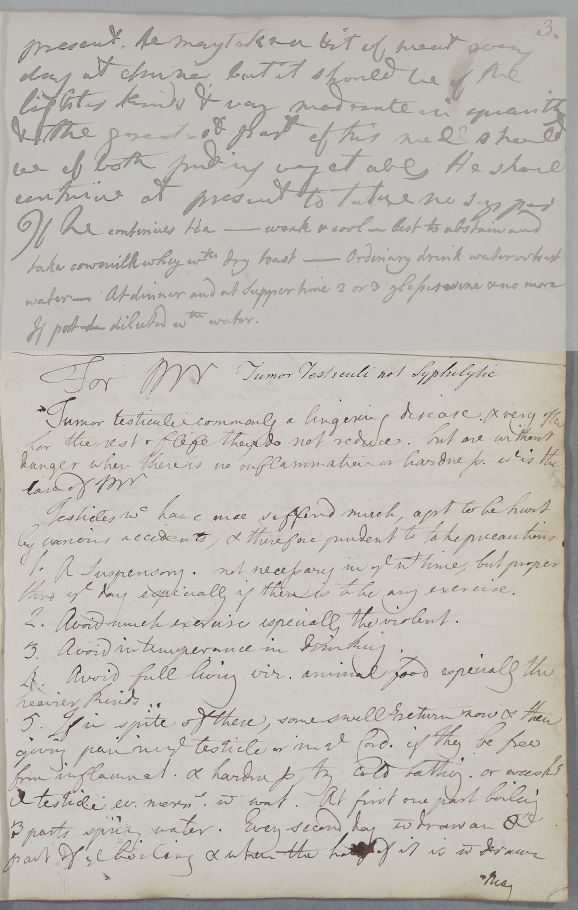 3.
present. He may take a bit of meat every
day at dinner but it should be of the
lightest kinds & very moderate in quantity
& the greatest part of this meal should
be of broth pudding vegetables He should
continue at present to take no supper
If he continues tea — weak & cool — best to abstain and
take cowmilk whey wth dry toast — Ordinary drink water or toast
water — At dinner and at supper time 2 or 3 glasses wine & no more
If port diluted wth water.
For Mr Tumor Testiculi not Syphilytic
Tumor testiculi commonly a lingering disease, & very often
for the rest of life they do not reduce. but are without
danger when there is no inflammation or hardness. wc is the
case of Mr
Testicles wc have once suffered much, apt to be hurt
by various accidents, & therefore prudent to take precautions
1. A Suspensory. not necessary in ye nt time, but proper
thro ye day especially if there is to be any exercise.
2. Avoid much exercise especially the violent.
3. Avoid intemperance in drinking.
4. Avoid full living viz. animal food especially the
heavier kinds.
5. If in spite of these, some swellg return now & then
giving pain in ye testicle or in ye Cord. if they be free
from inflammat. & hardness, try Cold bathing. or wash
ye testicle ev. morng. w wat. At first one part boiling
3 parts spring water. Every second day withdraw an 8th
part of ye boiling & when the half of it is withdrawn
may